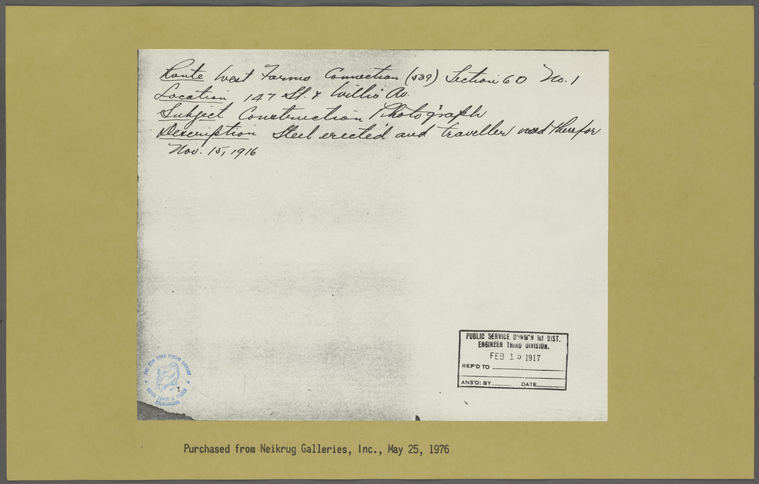 Route West Farms Connection (s39) Section 60 No. 1
Location 147 St. & Willis Av.
Subject Construction Photograph
Description Steel erected and traveller used therefor
Nov. 15, 1916
PUBLIC SERVICE COMM'N 1ST DIST.
ENGINEER THIRD DIVISION.
FEB 1 1917
REF'D TO
ANS'D: BY DATE
THE NEW YORK PUBLIC LIBRARY
ASTOR, LENOX & TILDEN
FOUNDATIONS
Purchased from Neikrug Galleries, Inc., May 25, 1976